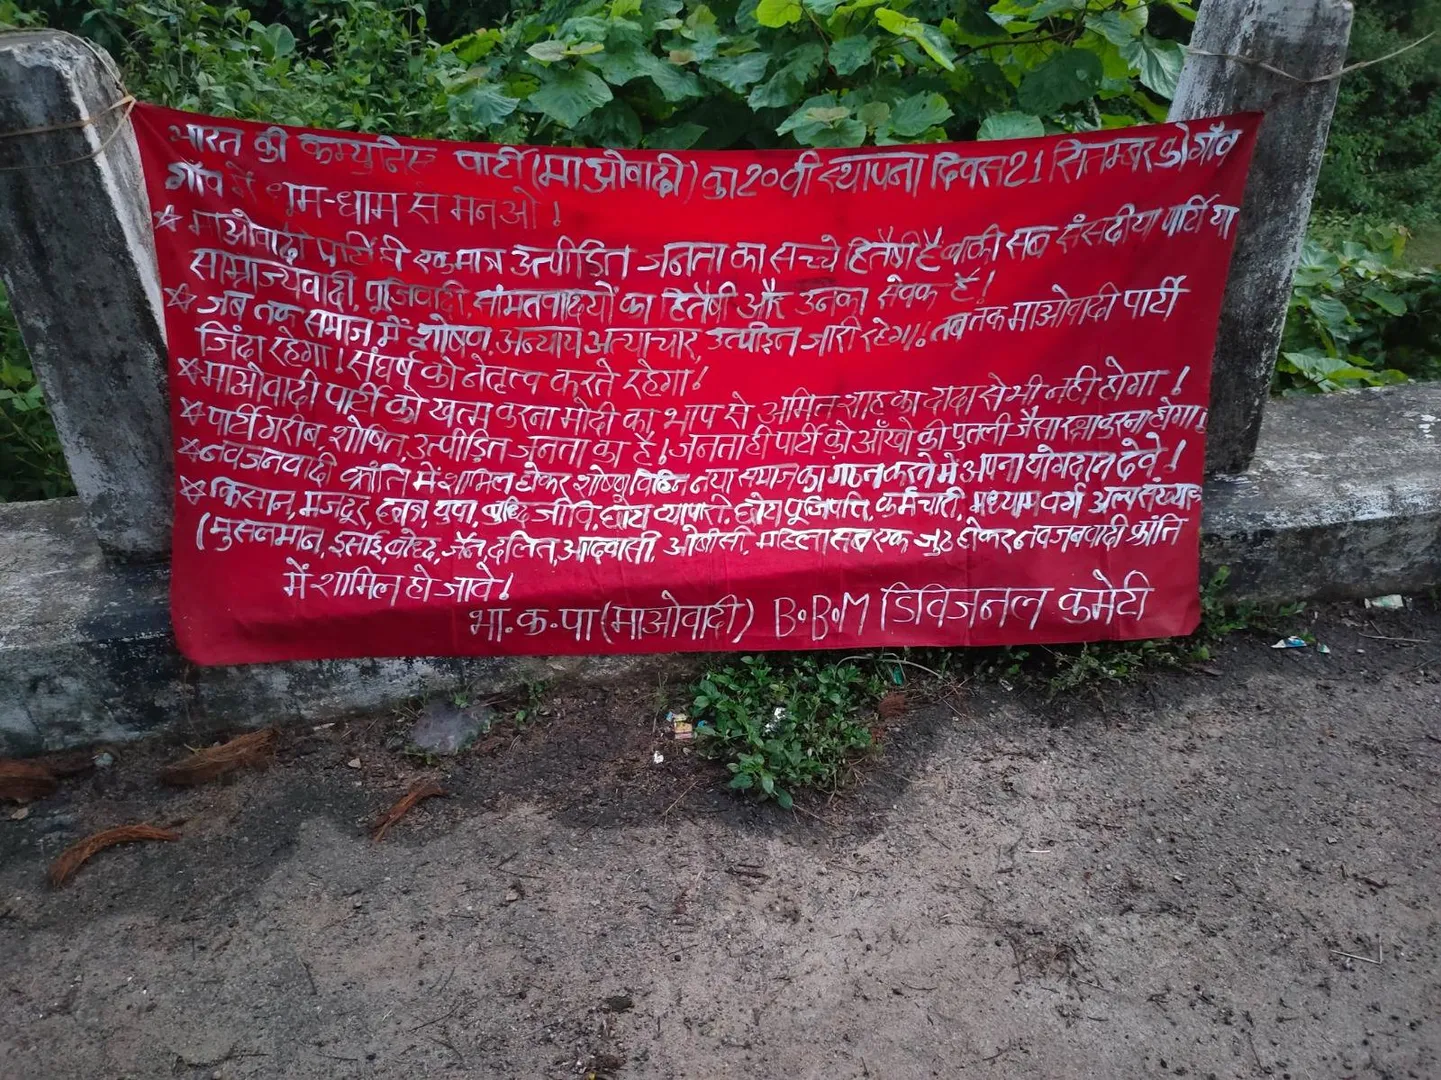 भारत की कम्युनिस्ट पार्टी (माओवादी) का 20वी स्थापना दिवस 21 सितम्बर को गाँव
गाँव में धुम-धाम से मनाओ!
☆ माओवादी पार्टी ही एकमात्र उत्पीड़ित जनता का सच्चे हितैषी है बाकी सब संसदीया पार्टियां
साम्राज्यवादी, पूजिवादी, सामंतवादियों का हितैषी और उनका सेवक है!
☆ जब तक समाज में शोषण, अन्याय अत्याचार, उत्पीड़न जारी रहेगा। तब तक माओवादी पार्टी
जिंदा रहेगा! संघर्ष को नेतृत्व करते रहेगा!
☆ माओवादी पार्टी को खत्म करना मोदी का भाप से अमित शाह का दादा से भी नही होगा!
☆ पार्टी गरीब, शोषित, उत्पीड़ित जनता का है! जनता ही पार्टी को आँखो की पुतली जैसा रक्षा करना होगा!
☆ नवजनवादी क्रांति में शामिल होकर शोषण विहिन नया समाज का गठन करने मे अपना योगदान देवे!
☆ किसान, मजदूर, छात्र, युवा, बुध्दि जीवि, छोटा व्यापारी, छोटा पूजिपति, कर्मचारी, मध्याम वर्ग अल्पसंख्यक
(मुसलमान, इसाई, बौध्द, जैन, दलित, आदिवासी, ओबीसी, महिला सब एक जुट होकर नवजनवादी क्रांति
में शामिल हो जावे!
भा.क.पा (माओवादी) B.B.M डिविजनल कमेटी